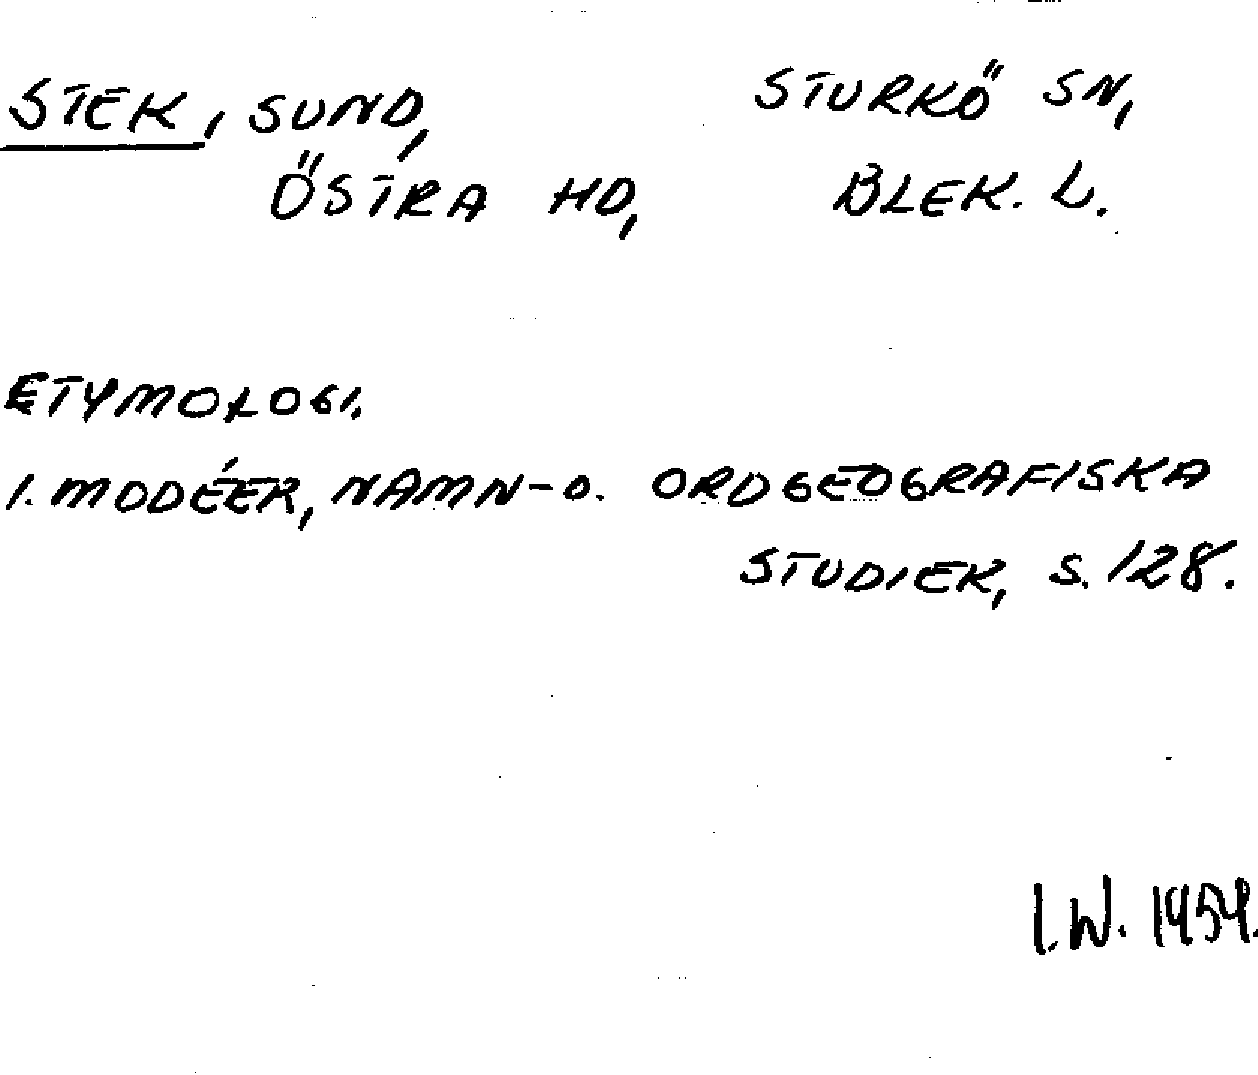 STEK, SUND, STURKÖ SN,
ÖSTRA HD, BLEK. L.
ETYMOLOGI.
I. MODÉER, NAMN- O. ORDGEOGRAFISKA
STUDIER, S. 128.
I.W. 1954.